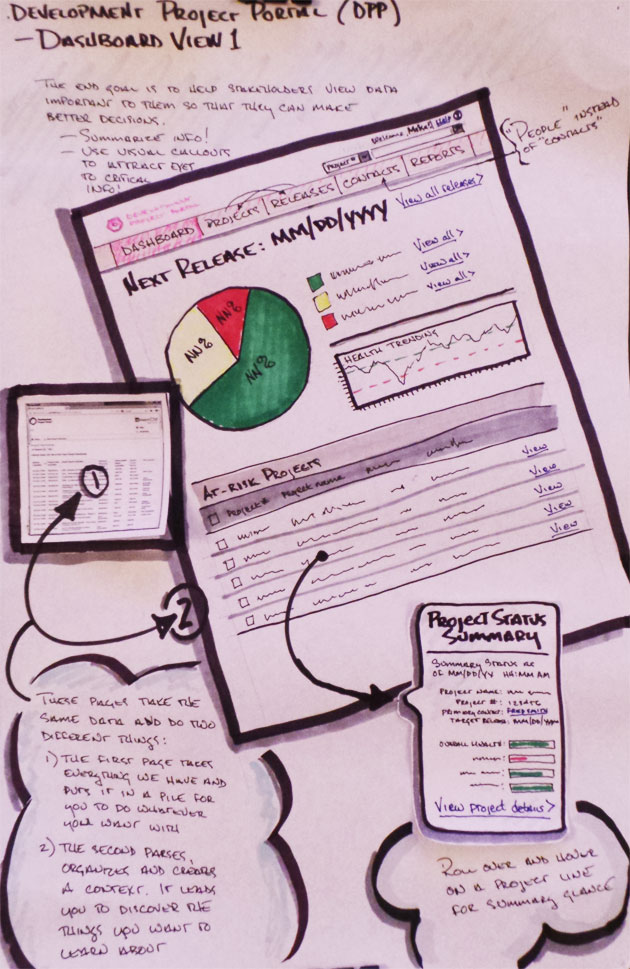 DEVELOPMENT PROJECT PORTAL (DPP)
- DASHBOARD VIEW 1
THE END GOAL IS TO HELP STAKEHOLDERS VIEW DATA
IMPORTANT TO THEM SO THAT THEY CAN MAKE
BETTER DECISIONS.
- SUMMARIZE INFO!
- USE USUAL CALLOUTS
TO ATTRACT EYES
TO CRITICAL
INFO!
"PEOPLE" INSTEAD
OF "CONTACTS"
WELCOME, HELP
PROJECT #
DEVELOPMENT
PROJECT PORTAL
DASHBOARD PROJECTS RELEASES CONTACTS REPORTS
NEXT RELEASE: MM/DD/YYYY
View all releases>
NN%
NN%
NN%
View all>
View all>
View all>
HEALTH TRENDING
AT-RISK PROJECTS
PROJECT # PROJECT NAME
VIEW
VIEW
VIEW
VIEW
VIEW
1
2
PROJECT STATUS
SUMMARY
SUMMARY STATUS AS
OF MM/DD/YY HH:MM AM
PROJECT NAME:
PROJECT #: 123456
PRIMARY CONTACT: FRED SMITH
TARGET RELEASE: MM/DD/YYYY
OVERALL HEALTH:
View project details>
THESE PAGES TAKE THE
SAME DATA AND DO TWO
DIFFERENT THINGS:
1) THE FIRST PAGE TAKES
EVERYTHING WE HAVE AND
PUTS IT IN A PILE FOR
YOU TO DO WHATEVER
YOU WANT WITH
2) THE SECOND PARSES,
ORGANIZES AND CREATES
A CONTEXT. IT LEADS
YOU TO DISCOVER THE
THINGS YOU WANT TO
LEARN ABOUT
ROLL OVER AND HOVER
ON A PROJECT LINE
FOR SUMMARY GLANCE